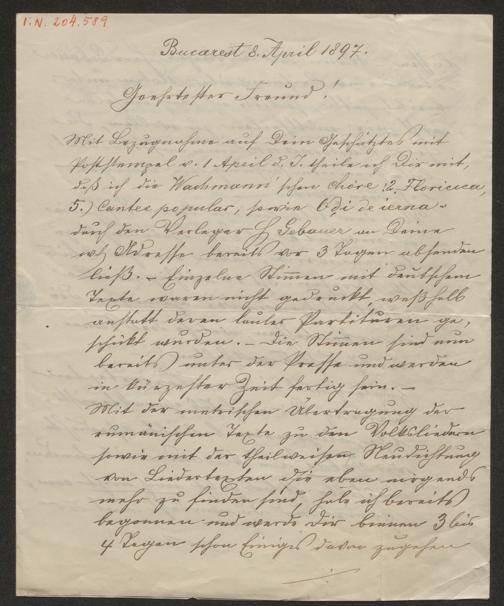 I.N. 204.589
Bucarest 8. April 1897.
Geehrtester Freund!
Mit Bezugnahme auf Dein Geschätztes mit
Poststempel v. 1 April d. J. theile ich Dir mit,
daß ich die Wachmann'schen Chöre: 2. Floricica,
5.) Cantec popular, sowie Odi de iarna
durch den Verleger Gebauer an Deine
Adresse bereits vor 3 Tagen absenden
ließ. – Einzelne Stimmen mit deutschem
Texte waren nicht gedruckt, weßhalb
anstatt deren lauter Partituren ge,
schickt wurden. – Die Stimmen sind nun
bereits unter der Presse und werden
in kürzester Zeit fertig sein. –
Mit der metrischen Übertragung der
rumänischen Texte zu den Volksliedern
sowie mit der theilweisen Neudichtung
von Liedertexten die eben nirgends
mehr zu finden sind, habe ich bereits
begonnen und werde Dir binnen 3 bis
4 Tagen schon Einiges davon zugehen